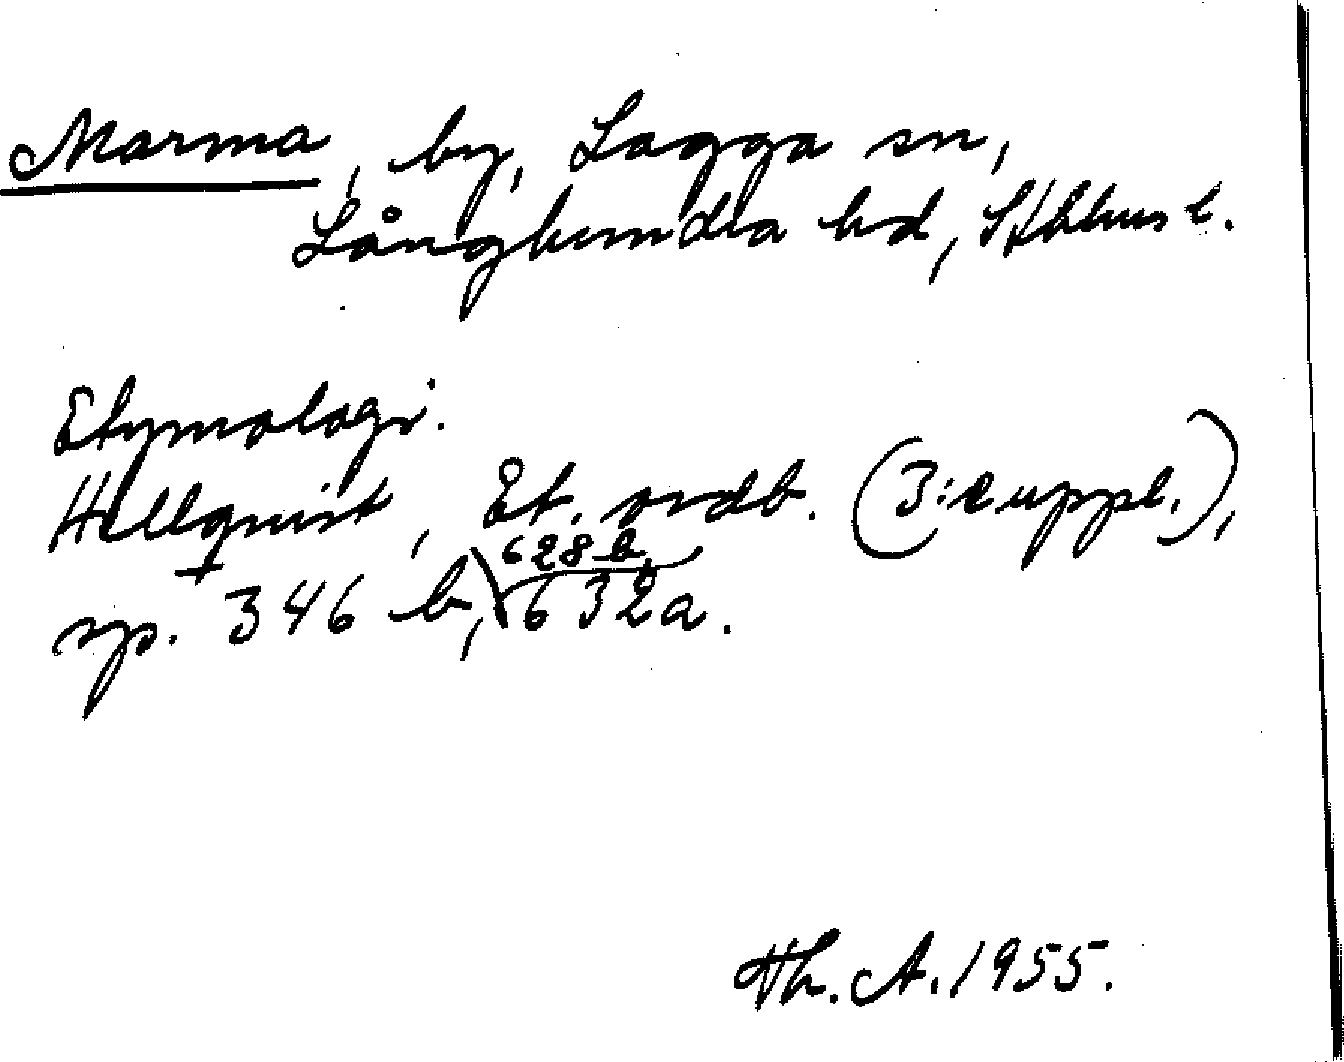 Marma, by, Lagga sn,
Långhundra hd, Sthlms l.
Etymologi.
Hellquist, Et. ordb. (3:e uppl.),
sp. 346 b, 628 b, 632a.
Th. A. 1955.